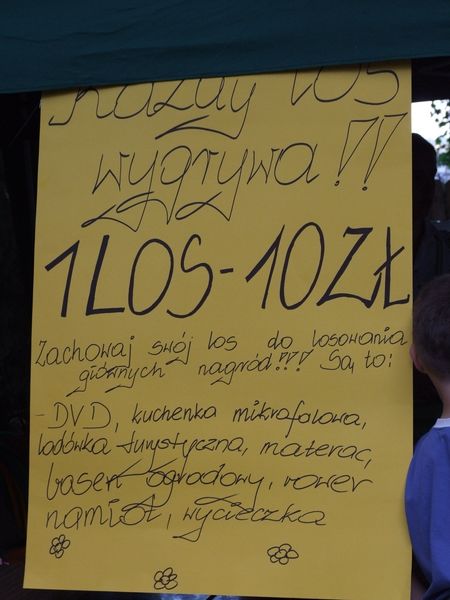 Każdy los
wygrywa!!
1 LOS - 10 ZŁ
Zachowaj swój los do losowania
głównych nagród!!! Są to:
- DVD, kuchenka mikrofalowa,
lodówka turystyczna, materac,
basen ogrodowy, rower
namiot, wycieczka